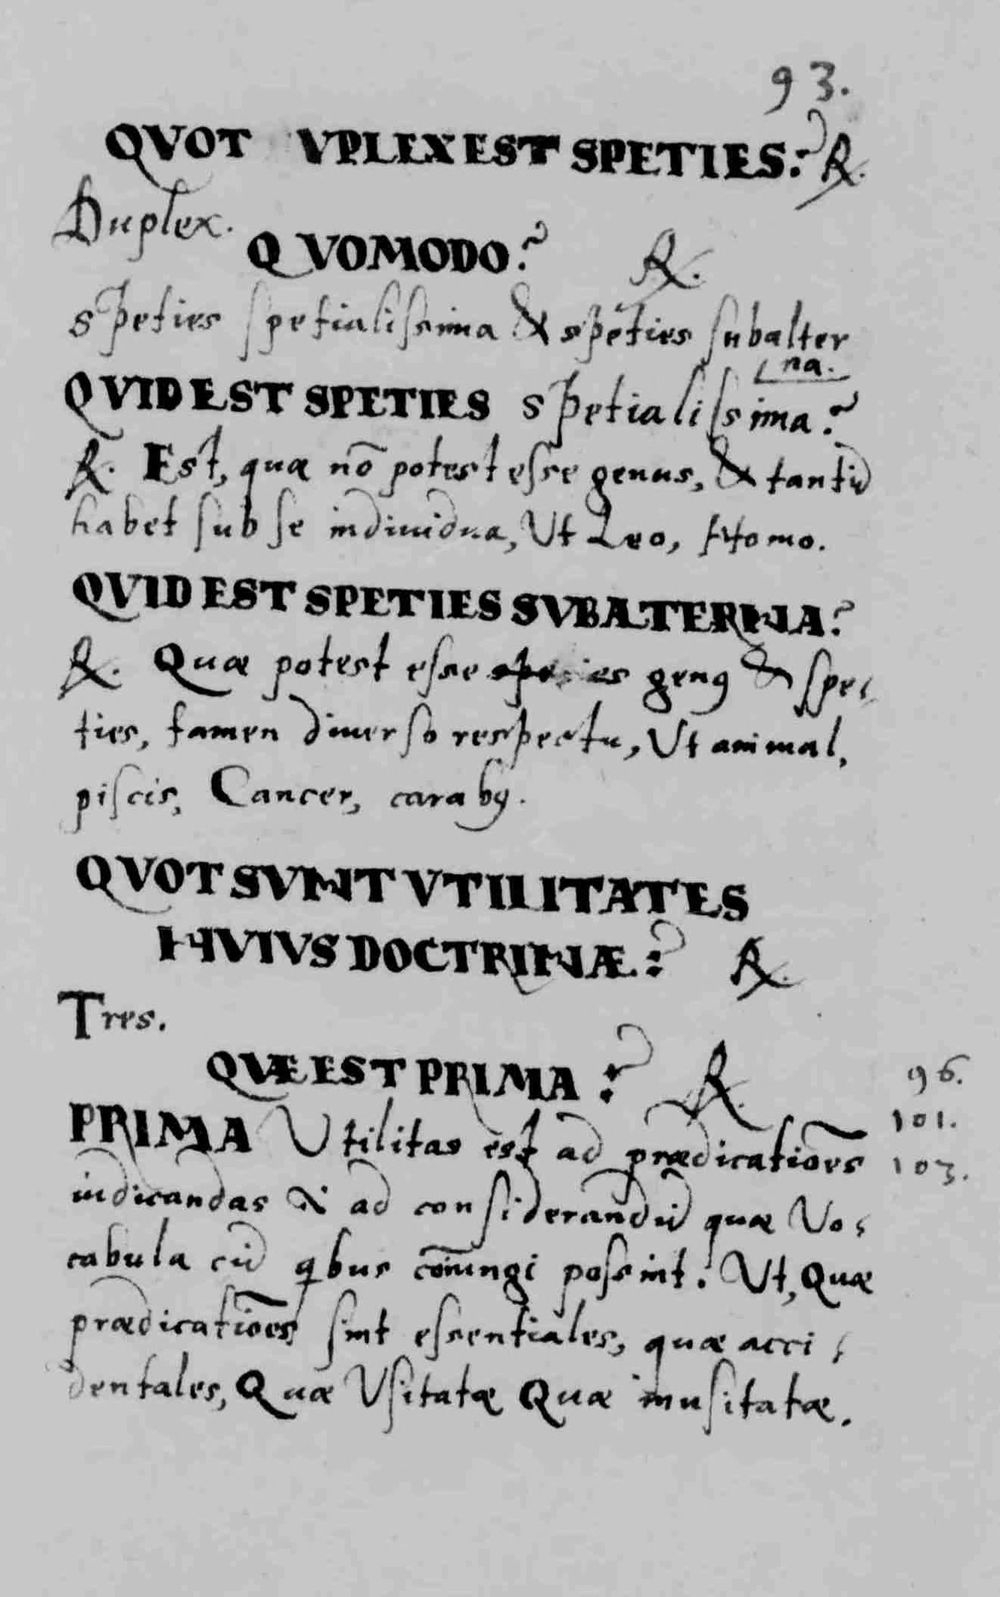 93.
QVOT VPLEX EST SPETIES? ℞.
Duplex.
QVOMODO? ℞.
speties spetialissima & speties subalter
na.
QVID EST SPETIES spetialissima?
℞. Est, quæ nō potest esse genus, & tantū
habet sub se indiuidua, Ut Leo, Homo.
QVID EST SPETIES SVBATERNA?
℞. Quæ potest esse species genꝰ & spe-
ties, tamen diuerso respectu, Ut animal,
piscis, Cancer, carabꝰ.
QVOT SVNT VTILITATES
HVIVS DOCTRINÆ? ℞.
Tres.
QVÆ EST PRIMA? ℞.
96.
PRIMA Utilitas est ad prædicatiões
101.
103.
iudicandas & ad considerandū quæ Vo-
cabula cū qbus cōiungi possint. Ut, Quæ
prædicatiōes sint essentiales, quæ acci-
dentales, Quæ Vsitatæ Quæ inusitatæ.